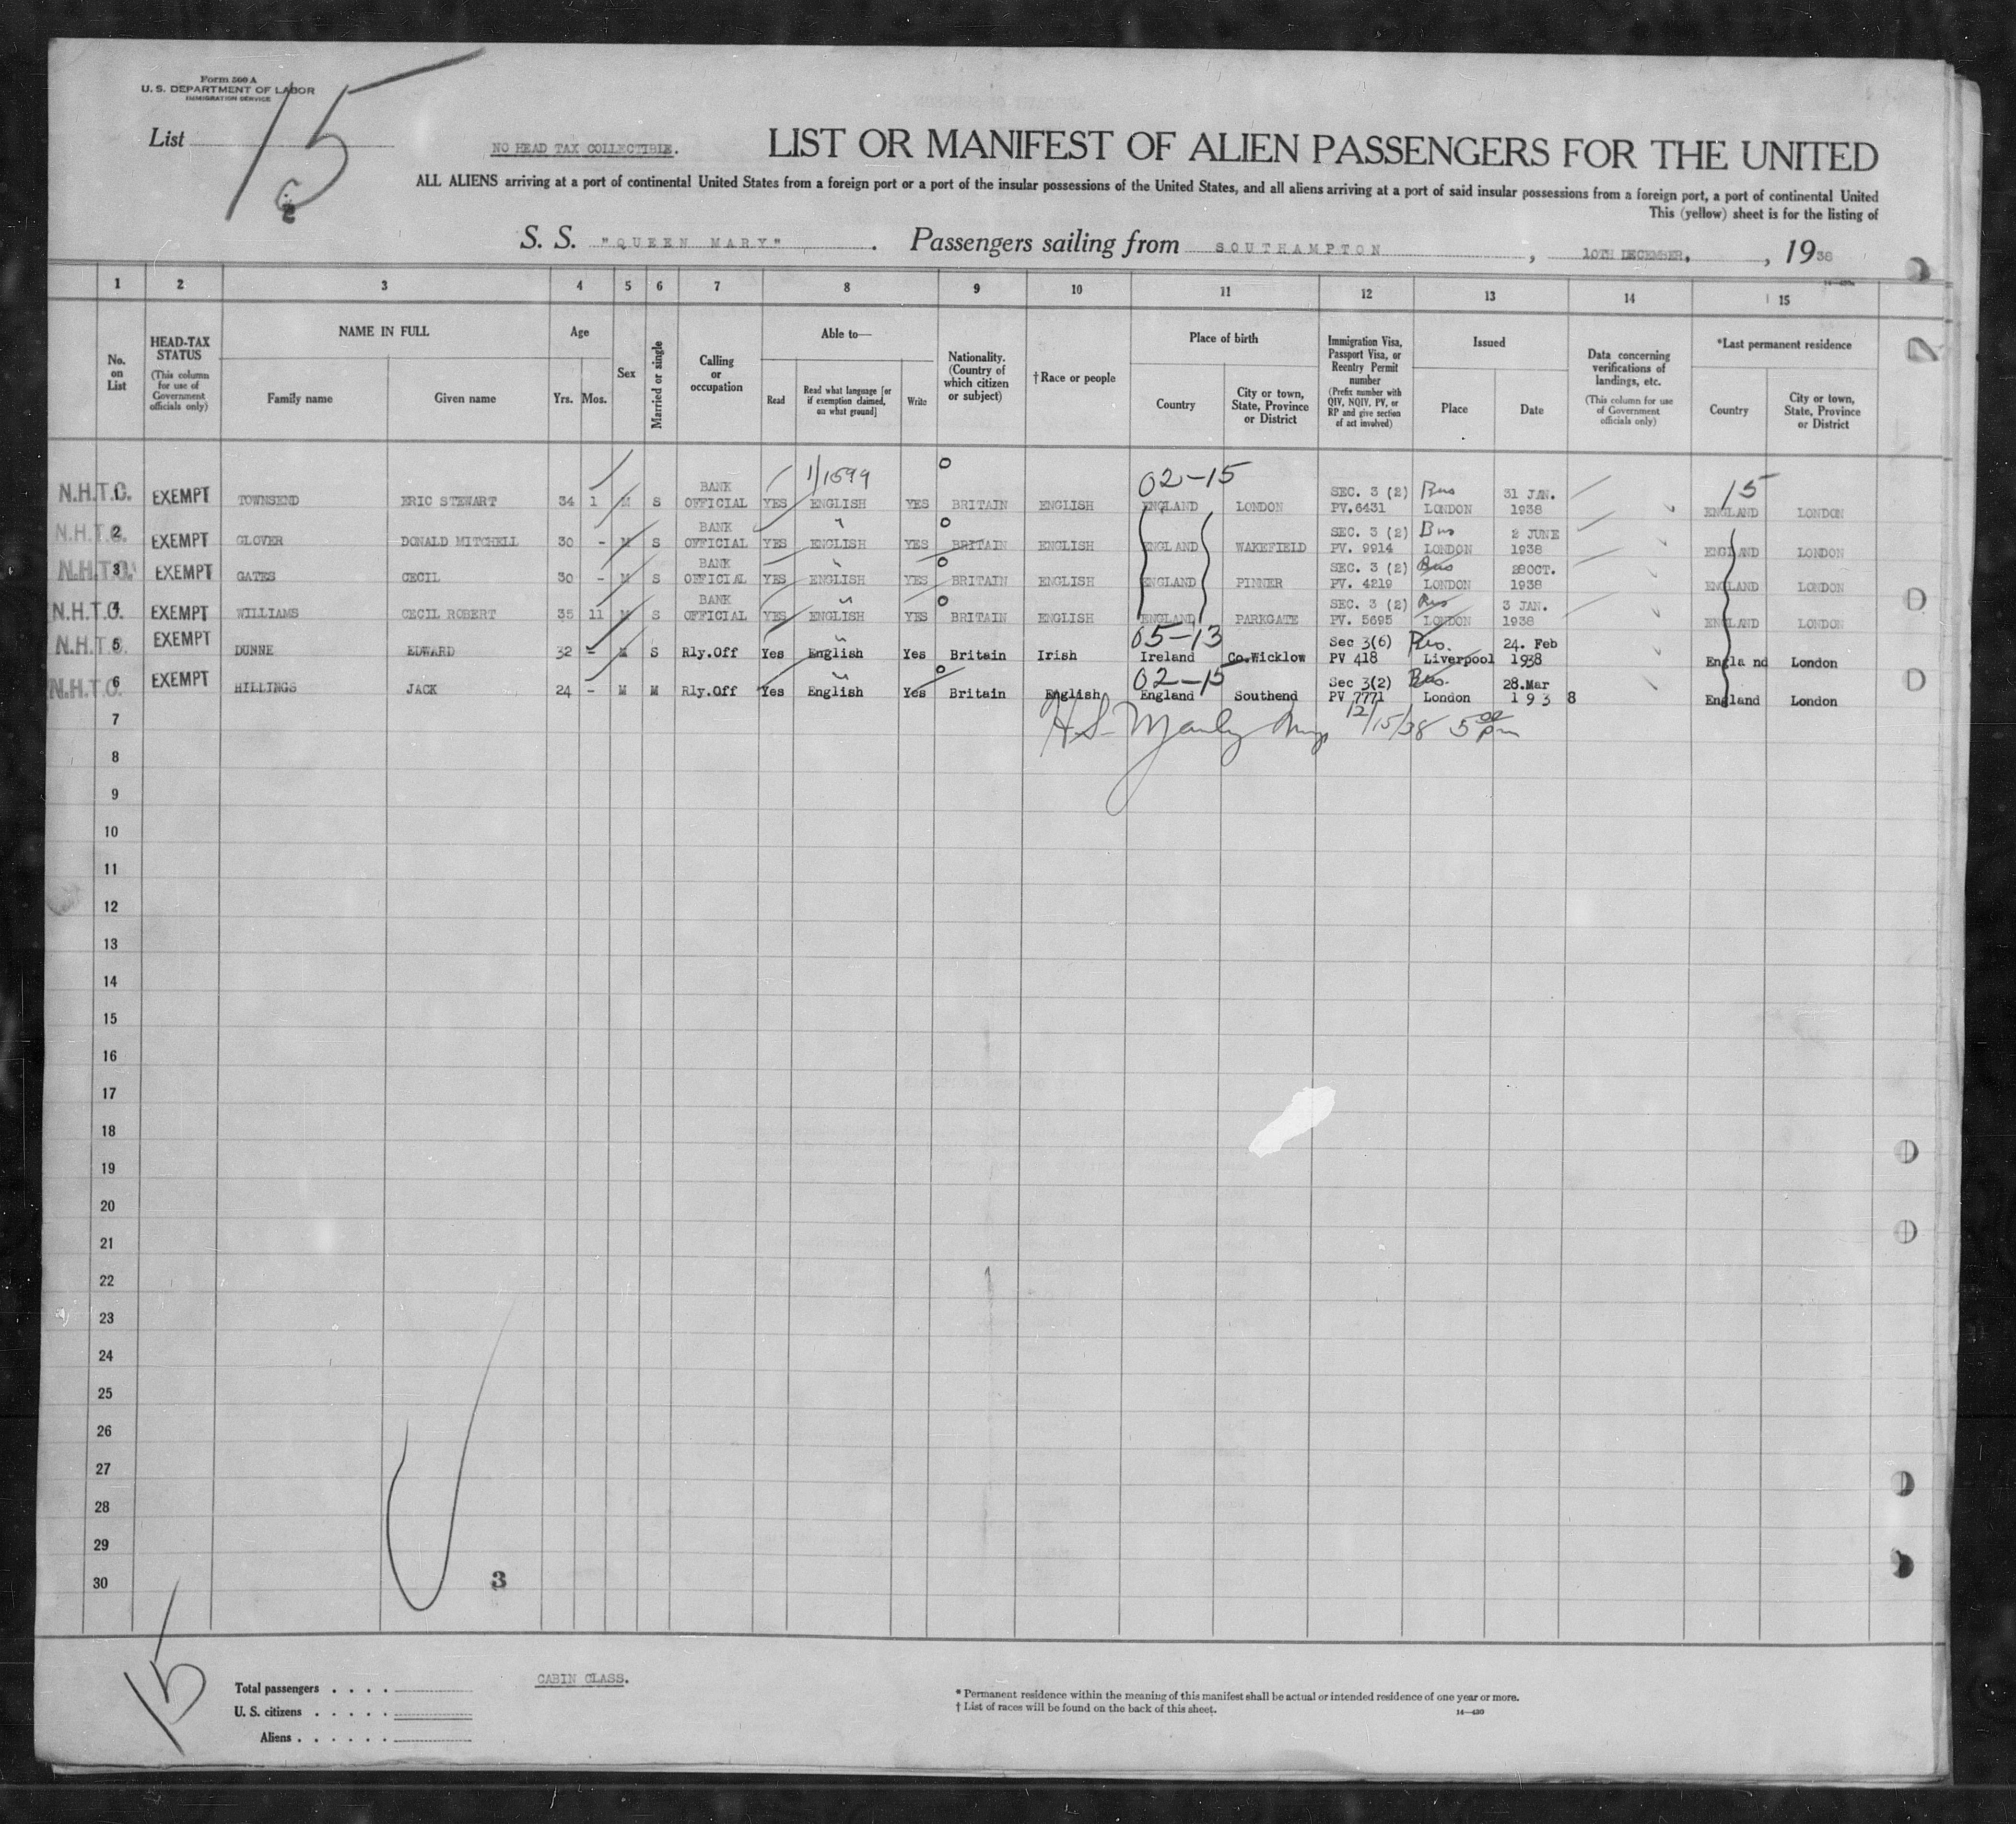 Form 500 A
U. S. DEPARTMENT OF LABOR
IMMIGRATION SERVICE
List 15
NO HEAD TAX COLLECTIBLE.
LIST OR MANIFEST OF ALIEN PASSENGERS FOR THE UNITED
ALL ALIENS arriving at a port of continental United States from a foreign port or a port of the insular possessions of the United States, and all aliens arriving at a port of said insular possessions from a foreign port, a port of continental United
This (yellow) sheet is for the listing of
S. S. "QUEEN MARY" . Passengers sailing from SOUTHAMPTON , 10TH DECEMBER. , 1938
1 2 3 4 5 6 7 8 9 10 11 12 13 14 15
No. on List
HEAD-TAX STATUS (This column for use of Government officials only)
NAME IN FULL
Family name
Given name
Age
Yrs. Mos.
Sex
Married or single
Calling or occupation
Able to—
Read
Read what language [or if exemption claimed, on what ground]
Write
Nationality. (Country of which citizen or subject)
†Race or people
Place of birth
Country
City or town, State, Province or District
Immigration Visa, Passport Visa, or Reentry Permit number (Prefix number with QIV, NQIV, PV, or RP and give section of act involved)
Issued
Place
Date
Data concerning verifications of landings, etc. (This column for use of Government officials only)
*Last permanent residence
Country
City or town, State, Province or District
1/1599 02-15 15
N.H.T.C. 1 EXEMPT TOWNSEND ERIC STEWART 34 1 M S BANK OFFICIAL YES ENGLISH YES BRITAIN ENGLISH ENGLAND LONDON SEC. 3 (2) PV.6431 Bus LONDON 31 JAN. 1938 ENGLAND LONDON
N.H.T.C. 2 EXEMPT GLOVER DONALD MITCHELL 30 - M S BANK OFFICIAL YES ENGLISH YES BRITAIN ENGLISH ENGLAND WAKEFIELD SEC. 3 (2) PV. 9914 Bus LONDON 2 JUNE 1938 ENGLAND LONDON
N.H.T.C. 3 EXEMPT GATES CECIL 30 - M S BANK OFFICIAL YES ENGLISH YES BRITAIN ENGLISH ENGLAND PINNER SEC. 3 (2) PV. 4219 Bus LONDON 28 OCT. 1938 ENGLAND LONDON
N.H.T.C. 4 EXEMPT WILLIAMS CECIL ROBERT 35 11 M S BANK OFFICIAL YES ENGLISH YES BRITAIN ENGLISH ENGLAND PARKGATE SEC. 3 (2) PV. 5695 Bus LONDON 3 JAN. 1938 ENGLAND LONDON
05-13
N.H.T.C. 5 EXEMPT DUNNE EDWARD 32 - M S Rly.Off Yes English Yes Britain Irish Ireland Co.Wicklow Sec 3(6) PV 418 Bus. Liverpool 24. Feb 1938 England London
02-15
N.H.T.C. 6 EXEMPT HILLINGS JACK 24 - M M Rly.Off Yes English Yes Britain English England Southend Sec 3(2) PV 7771 Bus. London 28.Mar 1938 England London
7 12/15/38 5 00 pm
8
9
10
11
12
13
14
15
16
17
18
19
20
21
22
23
24
25
26
27
28
29
30
3
15
CABIN CLASS.
Total passengers
U. S. citizens
Aliens
* Permanent residence within the meaning of this manifest shall be actual or intended residence of one year or more.
† List of races will be found on the back of this sheet.
14—430